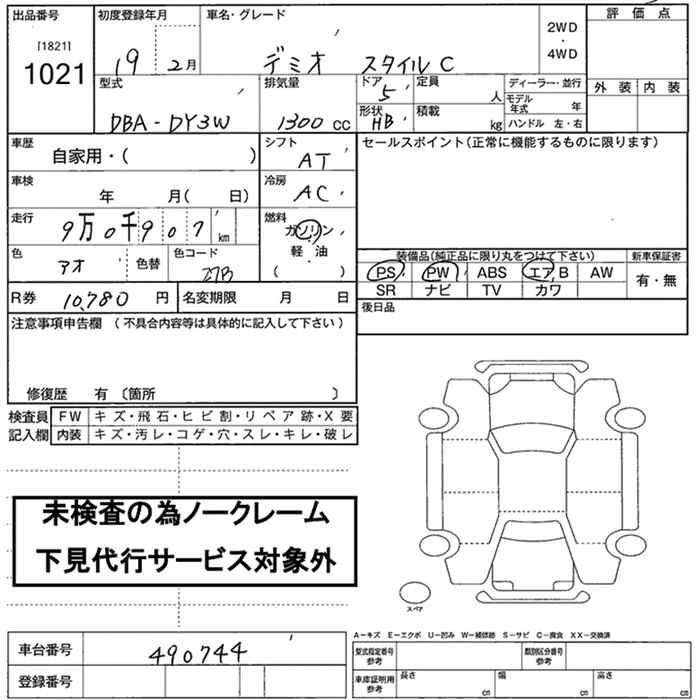 出品番号 初度登録年月 車名・グレード 評価点
[1821]
1021
19 2月 デミオ スタイルC 2WD
・
4WD
型式 排気量 ドア 定員 ディーラー・並行 外装 内装
5 人 モデル年式 年
DBA-DY3W 1300 CC 形状 積載 ハンドル 左・右
HB kg
車歴 シフト セールスポイント(正常に機能するものに限ります)
自家用・( ) AT
車検 冷房
年 月( 日) AC
走行 燃料
9万0千907 km ガソリン
軽油
( )
色 色替 色コード 装備品(純正品に限り丸をつけて下さい) 新車保証書
アオ 27B PS PW ABS エアB AW 有・無
R券 10,780 円 名変期限 月 日 SR ナビ TV カワ
注意事項申告欄(不具合内容等は具体的に記入して下さい) 後日品
修復歴 有 〔箇所 〕
検査員 FW キズ・飛石・ヒビ割・リペア跡・X要
記入欄 内装 キズ・汚レ・コゲ・穴・スレ・キレ・破レ
未検査の為ノークレーム
下見代行サービス対象外
スペア
A-キズ E-エクボ U-凹み W-補修跡 S-サビ C-腐食 XX-交換済
車台番号 490744 型式指定番号 参考 類別区分番号 参考
登録番号 車庫証明用 参考 長さ cm 幅 cm 高さ cm